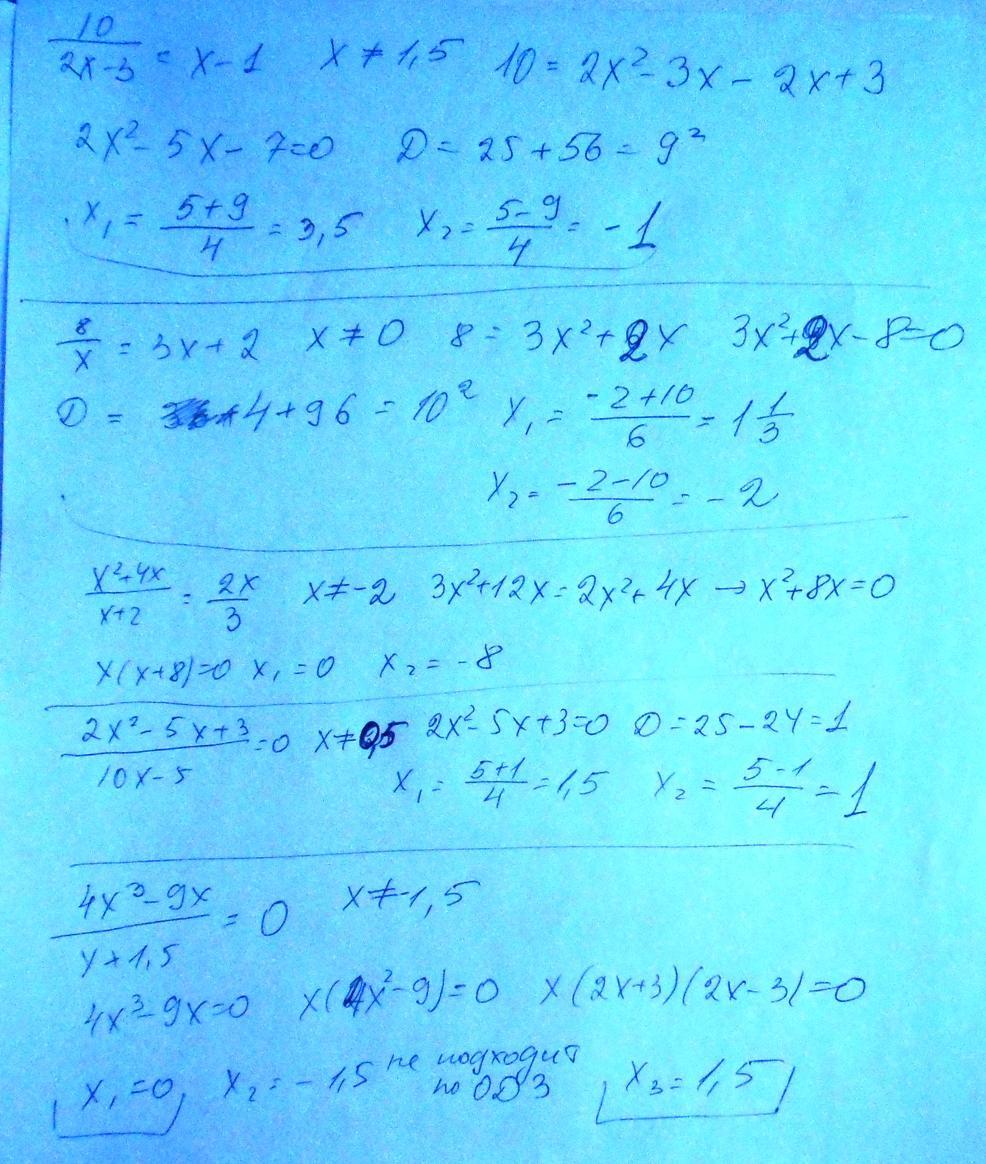 10/(2x-3) = x-1 x ≠ 1,5 10 = 2x² - 3x - 2x + 3
2x² - 5x - 7 = 0 D = 25 + 56 = 9²
x₁ = (5+9)/4 = 3,5 x₂ = (5-9)/4 = -1
8/x = 3x + 2 x ≠ 0 8 = 3x² + 2x 3x² + 2x - 8 = 0
D = 4 + 96 = 10² x₁ = (-2+10)/6 = 1 1/3
x₂ = (-2-10)/6 = -2
(x²+4x)/(x+2) = 2x/3 x ≠ -2 3x² + 12x = 2x² + 4x → x² + 8x = 0
x(x+8) = 0 x₁ = 0 x₂ = -8
(2x² - 5x + 3)/(10x - 5) = 0 x ≠ 0,5 2x² - 5x + 3 = 0 D = 25 - 24 = 1
x₁ = (5+1)/4 = 1,5 x₂ = (5-1)/4 = 1
(4x³ - 9x)/(x + 1,5) = 0 x ≠ -1,5
4x³ - 9x = 0 x(4x² - 9) = 0 x(2x+3)(2x-3) = 0
x₁ = 0 x₂ = -1,5 не подходит по ОДЗ x₃ = 1,5